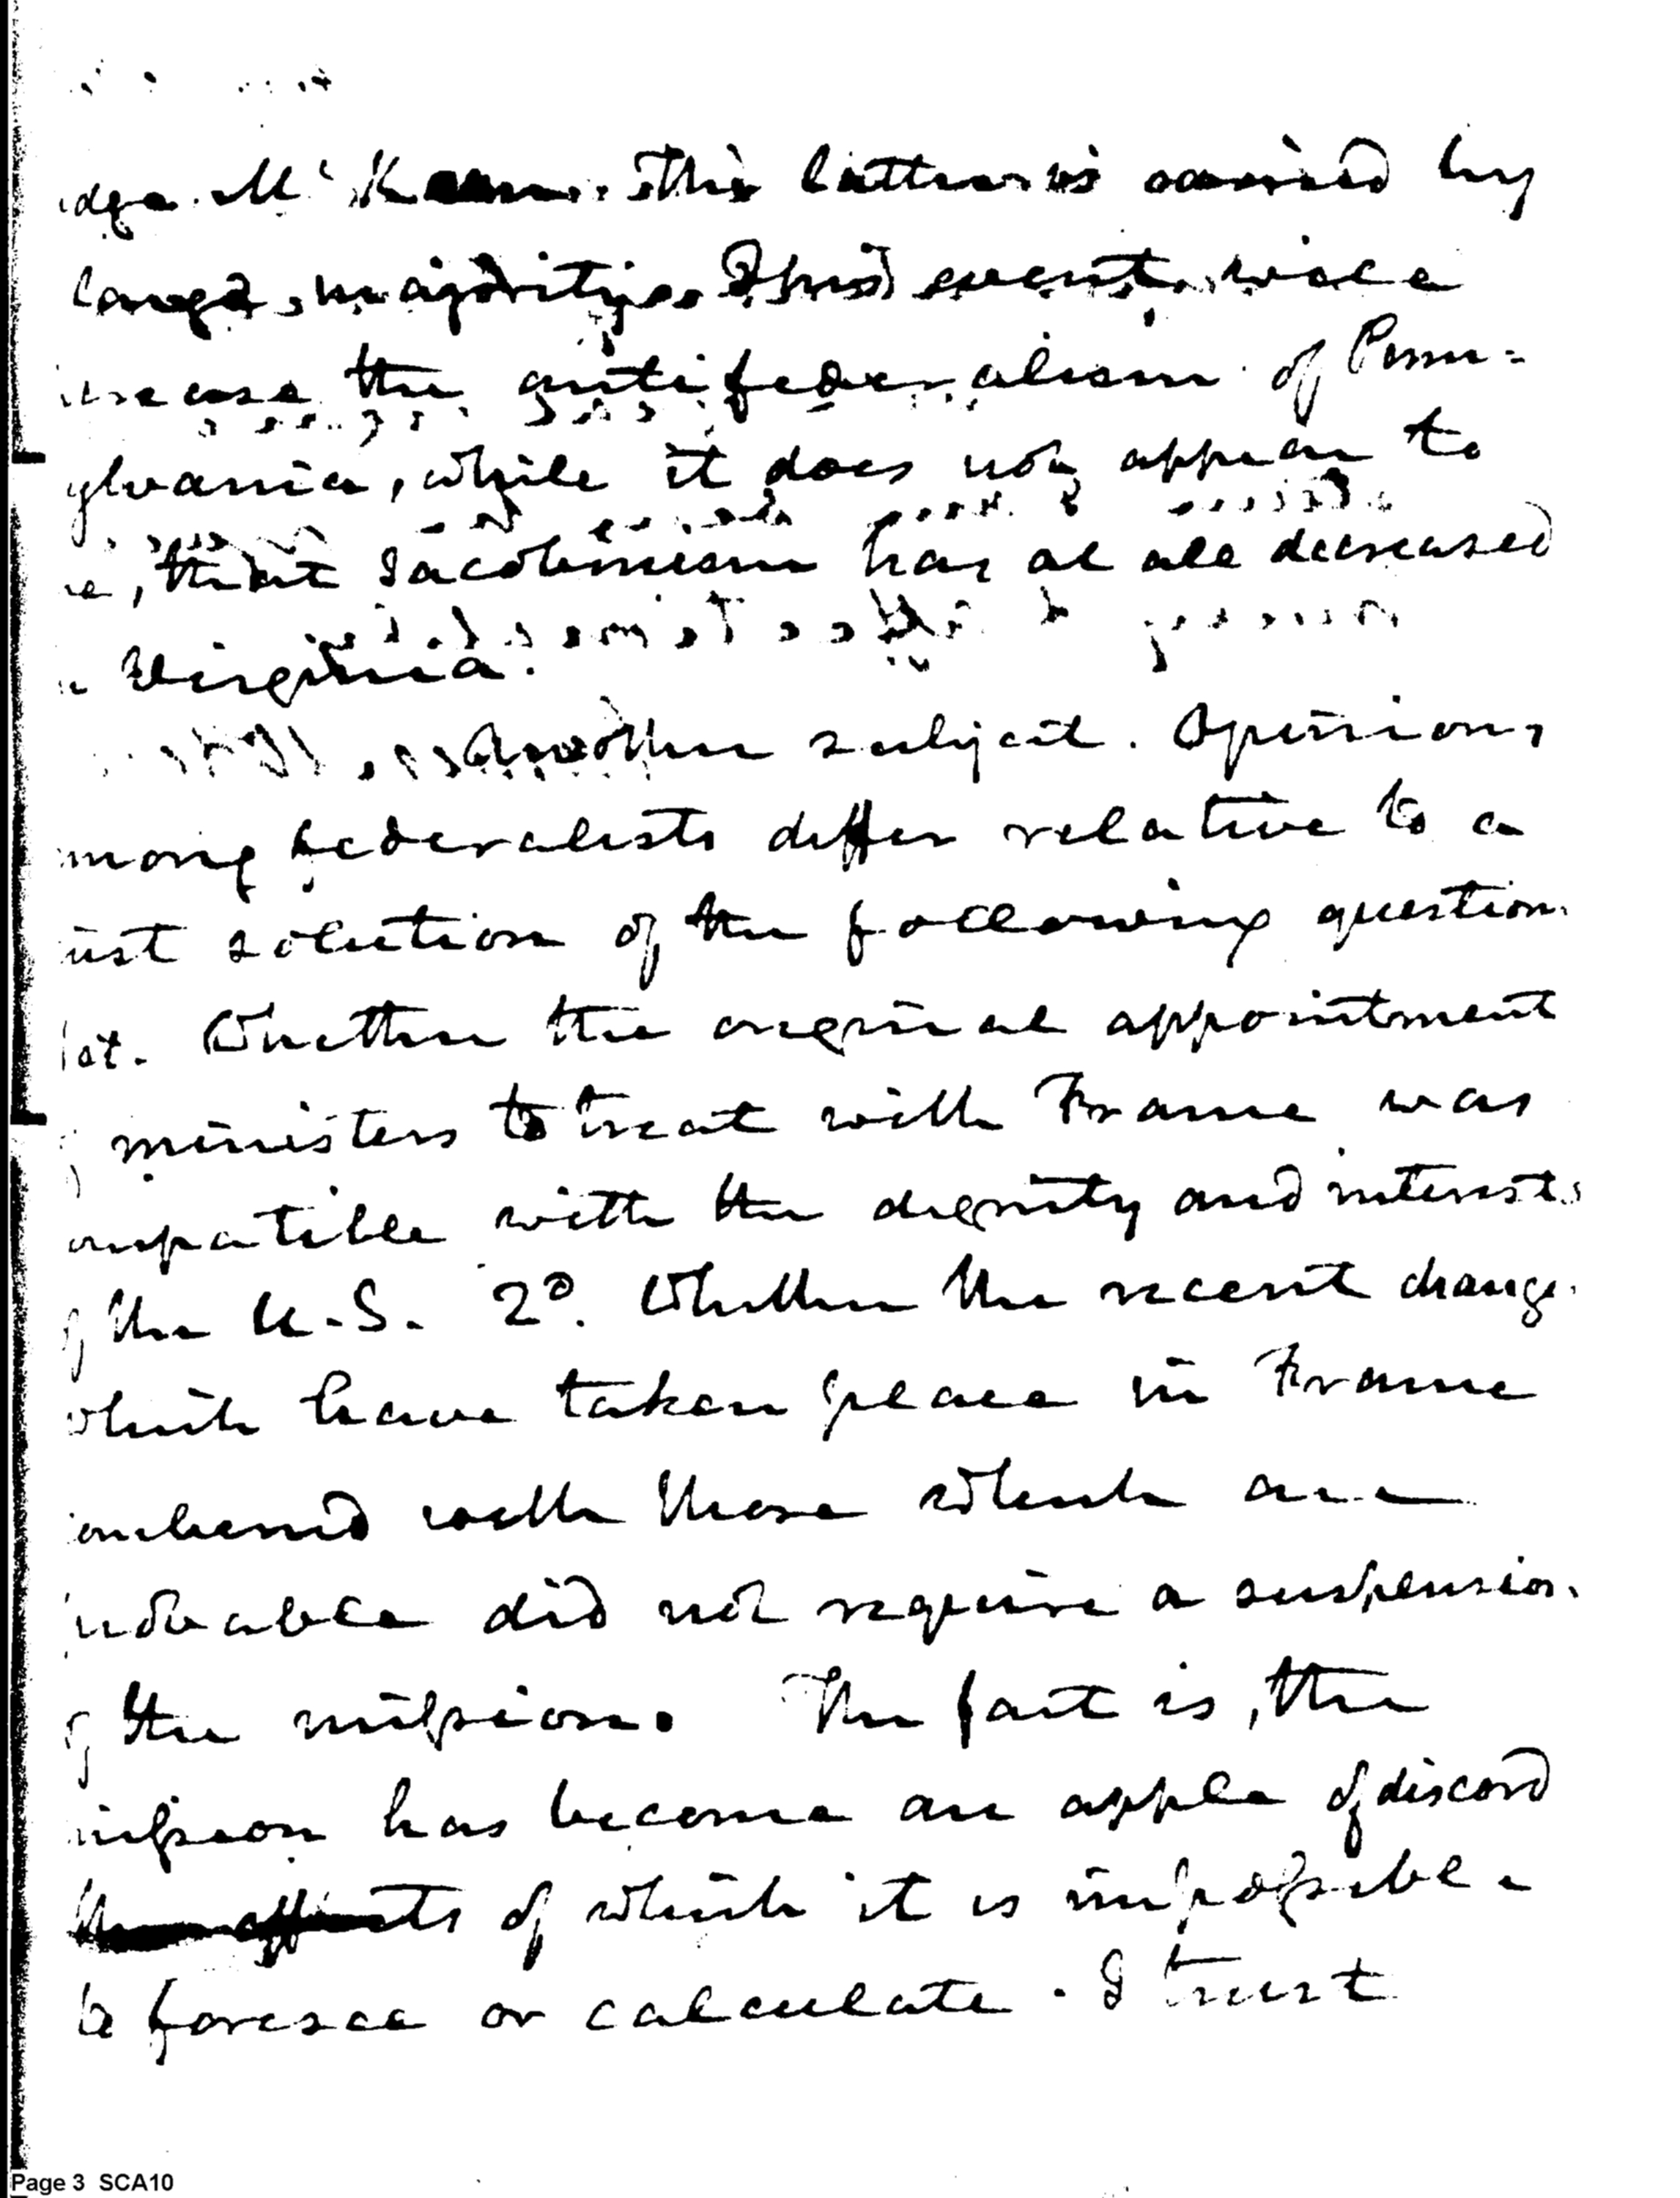 dge McKean. This latter is carried by
large majority. This event will
increase the antifederalism of Penn=
sylvania, while it does not appear to
me, that Jacobinism has at all decreased
in Virginia.
Another subject. Opinions
among federalists differ relative to a
just solution of the following question
1st. Whether the original appointment
of ministers to treat with France was
compatible with the dignity and interests
of the U.S. 2d. Whether the recent change
which have taken place in France
combined with those which are
probable did not require a suspension
of the mission. The fact is, the
mission has become an apple of discord
the effects of which it is impossible
to foresee or calculate. I trust
Page 3 SCA10